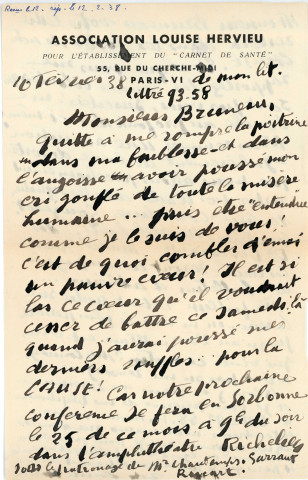 Reçu le 11. rep. le 12. 2. 38.
ASSOCIATION LOUISE HERVIEU
POUR L'ÉTABLISSEMENT DU "CARNET DE SANTÉ"
55, RUE DU CHERCHE-MIDI
PARIS-VI
10 Février 38 de mon lit.
Littré 93.58
Monsieur Bruneau,
Quitte à me rompre la poitrine
dans ma faiblesse et dans
l'angoisse avoir poussé mon
cri gonflé de toute la misère
humaine... puis être "entendue
comme je le suis de vous!
c'est de quoi combler d'émoi
un pauvre cœur! Il est si
las ce cœur qu'il voudrait
cesser de battre ce samedi là
quand j'aurai poussé mes
derniers souffles... pour la
CAUSE! Car notre prochaine
conférence se fera en Sorbonne
le 25 de ce mois à 9h du soir
dans l'amphithéâtre Richelieu
sous le patronage de Mrs Chautemps, Sarraut